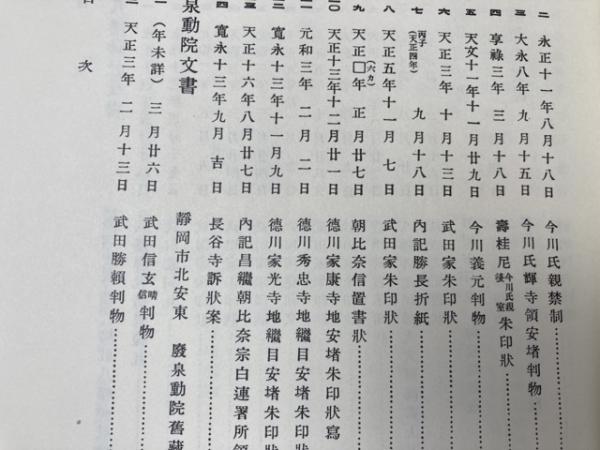 二 永正十一年八月十八日 今川氏親禁制
三 大永八年 九月十五日 今川氏輝寺領安堵判物
四 享祿三年 三月十八日 壽桂尼 今川氏親後室 朱印狀
五 天文十一年十一月廿九日 今川義元判物
六 天正三年 十月十三日 武田家朱印狀
七 丙子(天正四年) 九月十八日 內記勝長折紙
八 天正五年十一月七日 武田家朱印狀
九 天正□(六カ)年 正月廿七日 朝比奈信置書狀
一〇 天正十三年十二月廿一日 德川家康寺地安堵朱印狀寫
二 元和三年 二月二日 德川秀忠寺地繼目安堵朱印
三 寬永十三年十一月九日 德川家光寺地繼目安堵朱印狀
三 天正十六年八月廿七日 內記昌繼朝比奈宗白連署所領
四 寬永十三年九月吉日 長谷寺訴狀案
泉動院文書 靜岡市北安東 廢泉動院舊藏
一 (年未詳) 三月廿六日 武田信玄晴信判物
二 天正三年 二月十三日 武田勝賴判物
目次